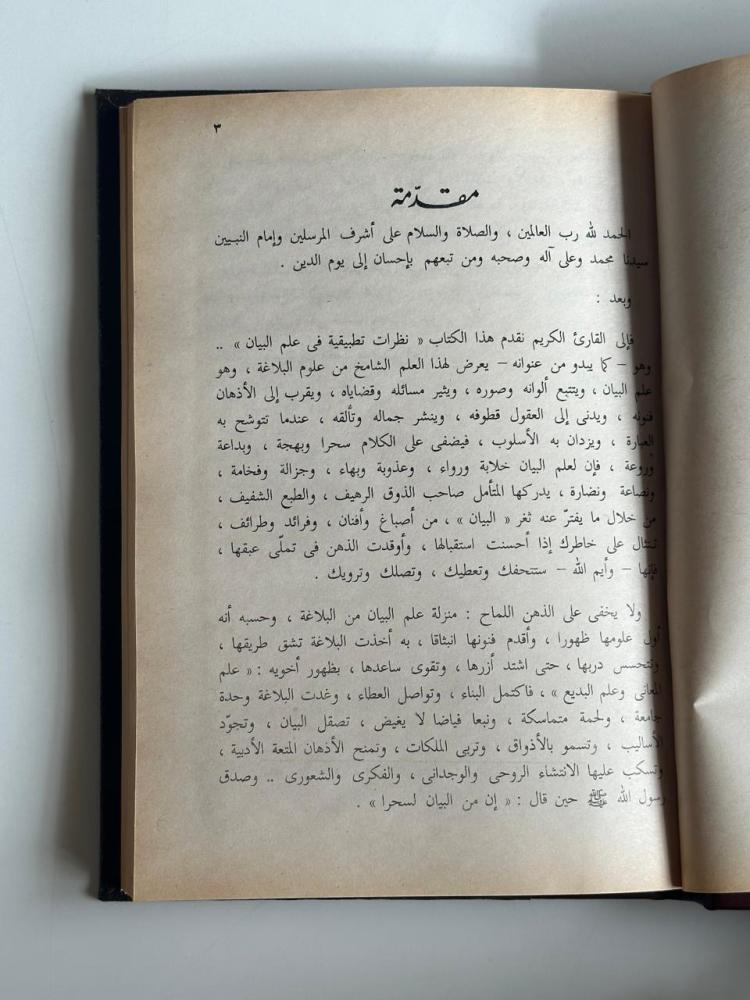 ٣
مقدّمة
الحمد لله رب العالمين ، والصلاة والسلام على أشرف المرسلين وإمام النبيين
سيدنا محمد وعلى آله وصحبه ومن تبعهم بإحسان إلى يوم الدين .
وبعد :
فإلى القارئ الكريم نقدم هذا الكتاب « نظرات تطبيقية فى علم البيان » ..
وهو – كما يبدو من عنوانه – يعرض لهذا العلم الشامخ من علوم البلاغة ، وهو
علم البيان ، ويتتبع ألوانه وصوره ، ويثير مسائله وقضاياه ، ويقرب إلى الأذهان
فنونه ، ويدنى إلى العقول قطوفه ، وينشر جماله وتألقه ، عندما تتوشح به
العبارة ، ويزدان به الأسلوب ، فيضفى على الكلام سحرا وبهجة ، وبداعة
وروعة ، فإن لعلم البيان خلابة ورواء ، وعذوبة وبهاء ، وجزالة وفخامة ،
ونصاعة ونضارة ، يدركها المتأمل صاحب الذوق الرهيف ، والطبع الشفيف ،
من خلال ما يفترّ عنه ثغر « البيان » ، من أصباغ وأفنان ، وفرائد وطرائف ،
تنثال على خاطرك إذا أحسنت استقبالها ، وأوقدت الذهن فى تملّى عبقها ،
فإنها – وأيم الله – ستتحفك وتعطيك ، وتصلك وترويك .
ولا يخفى على الذهن اللماح : منزلة علم البيان من البلاغة ، وحسبه أنه
أول علومها ظهورا ، وأقدم فنونها انبثاقا ، به أخذت البلاغة تشق طريقها ،
وتتحسس دربها ، حتى اشتد أزرها ، وتقوى ساعدها ، بظهور أخويه : « علم
المعانى وعلم البديع » ، فاكتمل البناء ، وتواصل العطاء ، وغدت البلاغة وحدة
جامعة ، ولحمة متماسكة ، ونبعا فياضا لا يغيض ، تصقل البيان ، وتجوّد
الأساليب ، وتسمو بالأذواق ، وتربى الملكات ، وتمنح الأذهان المتعة الأدبية ،
وتسكب عليها الانتشاء الروحى والوجدانى ، والفكرى والشعورى .. وصدق
رسول الله ﷺ حين قال : « إن من البيان لسحرا » .